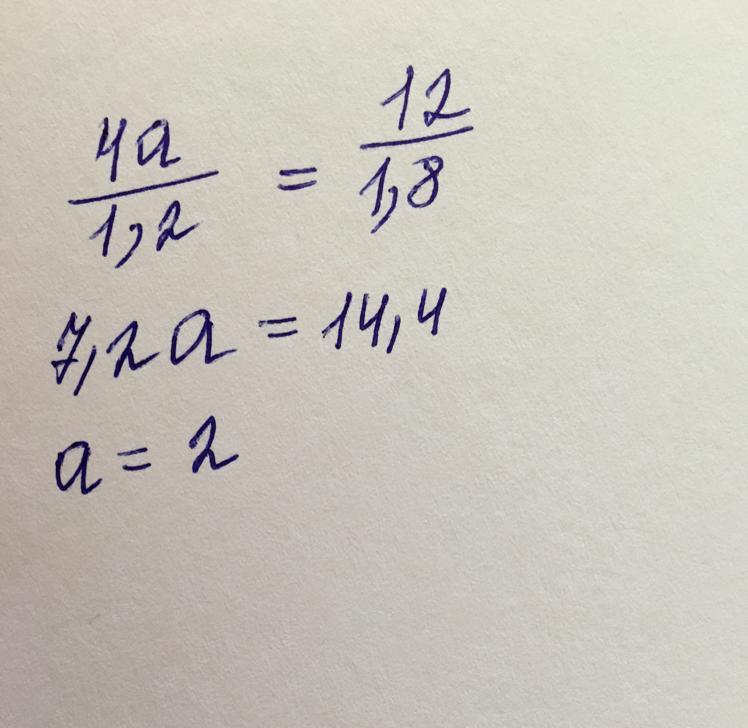 4a/1,2 = 12/1,8
7,2a = 14,4
a = 2